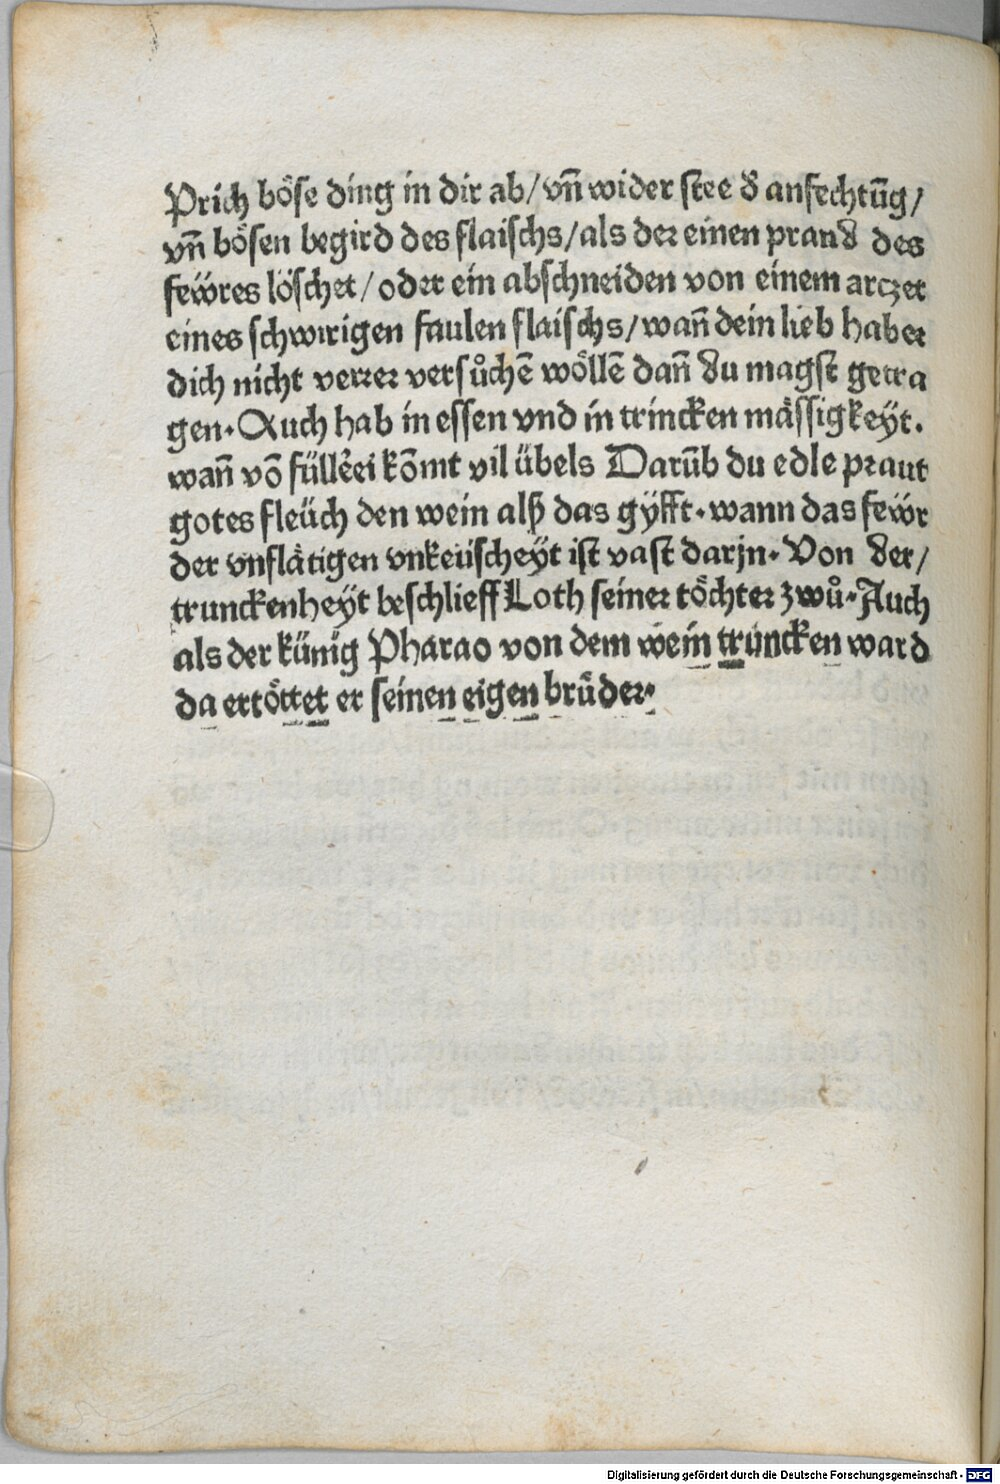 Prich böse ding in dir ab/ vn̄ wider stee d̕ anfechtūg/
vn̄ bösen begird des flaischs/ als der einen prand des
fewͤres löschet/ oder ein abschneiden von einem arczet
eines schwirigen faulen flaischs/ wan̄ dein lieb haber
dich nicht verrer versůchē wöllē dan̄ du magst getra
gen. Auch hab in essen vnd in trincken mässigkeÿt.
wan̄ vō fülleͤrei kōmt vil übels Darūb du edle praut
gotes fleüch den wein alß das gÿfft. wann das fewͤr
der vnflätigen vnkeüscheÿt ist vast darjn. Von der/
trunckenheÿt beschlieff Loth seiner töchter zwů. Auch
als der künig Pharao von dem wein truncken ward
da ertöttet er seinen eigen brüder.
Digitalisierung gefördert durch die Deutsche Forschungsgemeinschaft - DFG